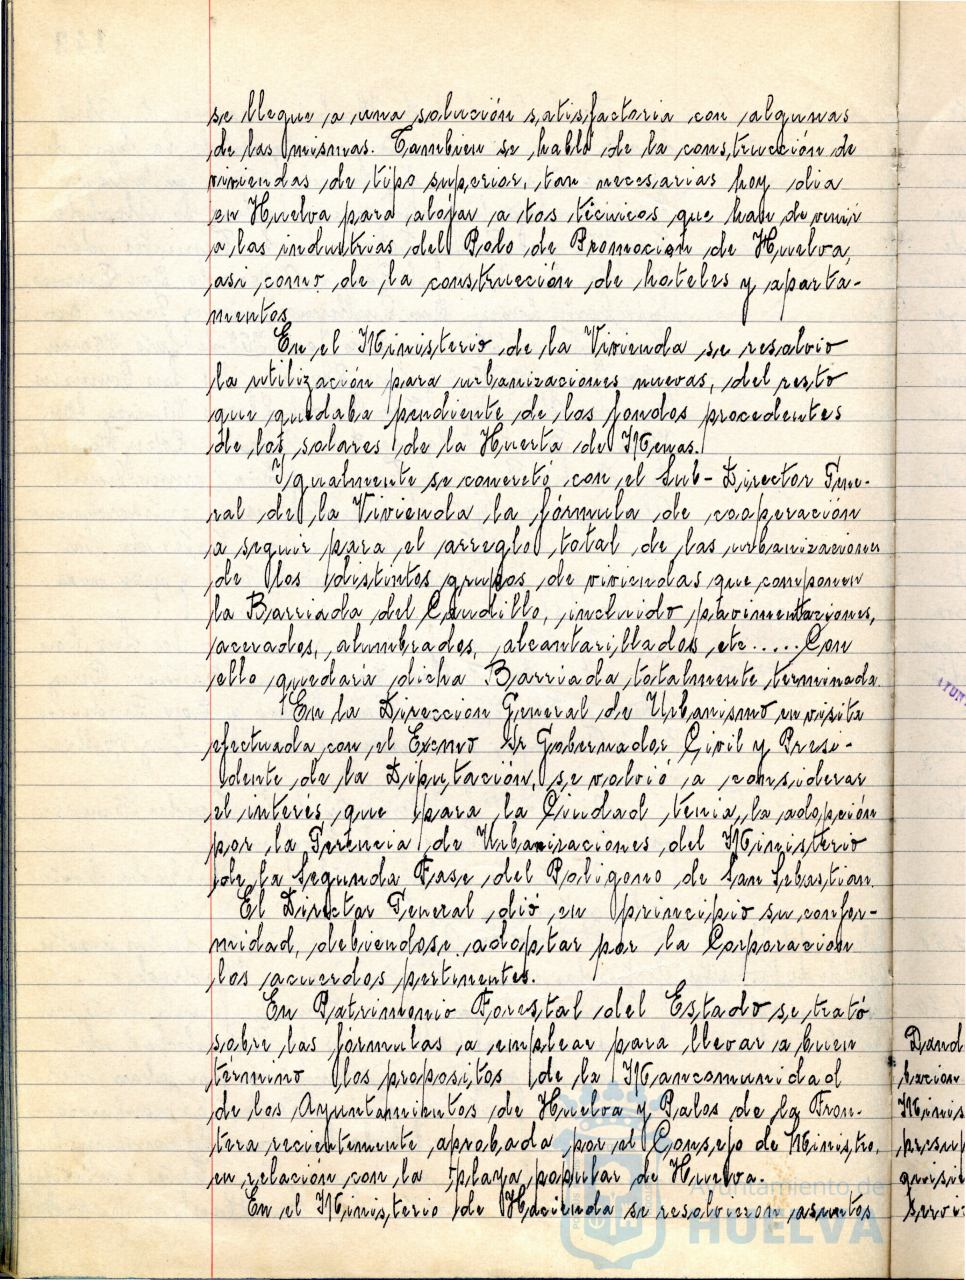 se llegue a una solución satisfactoria con algunas
de las mismas. Tambien se habló de la construcción de
viviendas de tipo superior, tan necesarias hoy dia
en Huelva para alojar a los técnicos que han de venir
a las industrias del Polo de Promoción de Huelva,
asi como de la construcción de hoteles y aparta-
mentos.
En el Ministerio de la Vivienda se resolvio
la utilización para urbanizaciones nuevas, del resto
que quedaba pendiente de los fondos procedentes
de los solares de la Huerta de Menas.
Igualmente se concretó con el Sub-Director Gene-
ral de la Vivienda la fórmula de cooperación
a seguir para el arreglo total de las urbanizaciones
de los distintos grupos de viviendas que componen
la Barriada del Caudillo, incluido pavimentaciones,
acerados, alumbrados, alcantarillados etc..... Con
ello quedará dicha Barriada totalmente terminada.
En la Dirección General de Urbanismo en visita
efectuada con el Excmo Sr Gobernador Civil y Presi-
dente de la Diputación, se volvió a considerar
el interés que para la Ciudad tenia, la adopción
por la Gerencia de Urbanizaciones del Ministerio
de la Segunda Fase del Poligono de San Sebastian.
El Director General dió en principio su confor-
midad, debiendose adoptar por la Corporación
los acuerdos pertinentes.
En Patrimonio Forestal del Estado se trató
sobre las fórmulas a emplear para llevar a buen
término los propositos de la Mancomunidad
de los Ayuntamientos de Huelva y Palos de la Fron-
tera recientemente aprobada por el Consejo de Ministro,
en relación con la playa popular de Huelva.
En el Ministerio de Hacienda se resolvieron asuntos
Ayuntamiento de
HUELVA